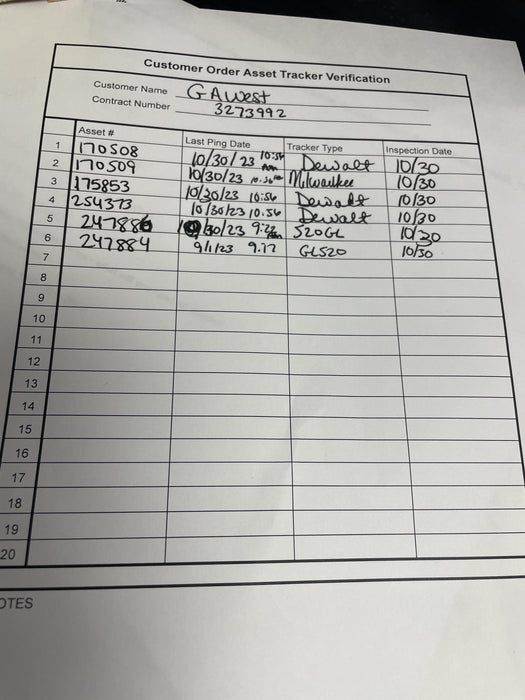 Customer Order Asset Tracker Verification
Customer Name GAWest
Contract Number 3273992
Asset # Last Ping Date Tracker Type Inspection Date
1 170508 10/30/23 10:56 Am Dewalt 10/30
2 170509 10/30/23 10:56 Milwaukee 10/30
3 175853 10/30/23 10:56 Dewalt 10/30
4 254373 10/30/23 10:56 Dewalt 10/30
5 247886 10/30/23 9:22 520GL 10/30
6 247884 9/1/23 9:17 GL520 10/30
7
8
9
10
11
12
13
14
15
16
17
18
19
20
OTES